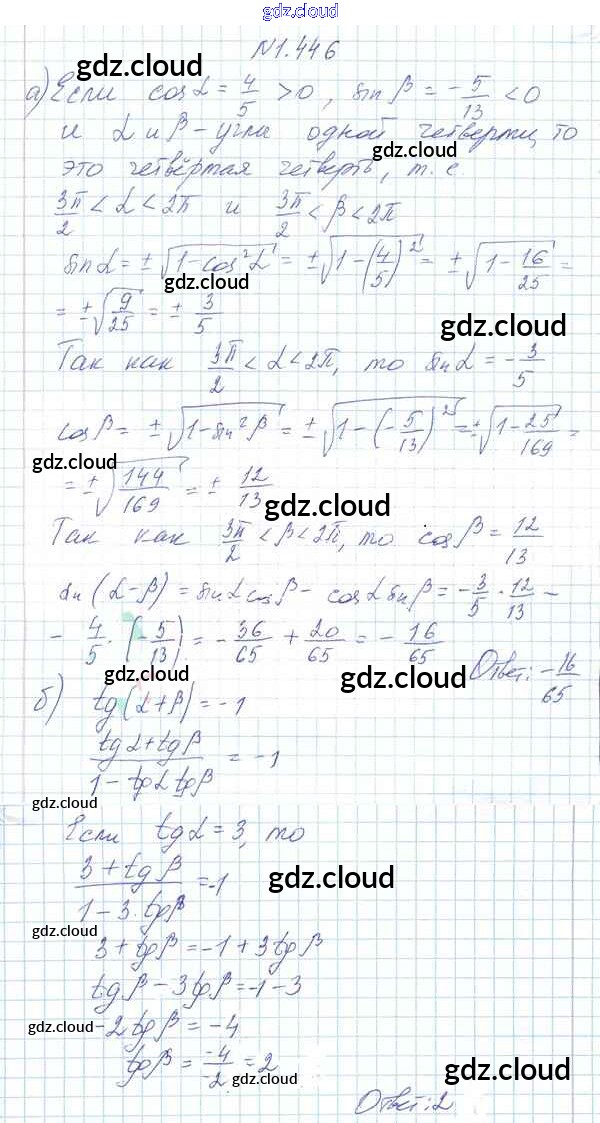 gdz.cloud
N1.446
gdz.cloud
а) Если cos α = 4/5 > 0, sin β = -5/13 < 0
и α и β - углы одной четверти, то
gdz.cloud
это четвёртая четверть, т. е.
3π/2 < α < 2π и 3π/2 < β < 2π
sin α = ± √(1 - cos² α) = ± √(1 - (4/5)²) = ± √(1 - 16/25) =
gdz.cloud
= ± √(9/25) = ± 3/5
gdz.cloud
Так как 3π/2 < α < 2π, то sin α = -3/5
cos β = ± √(1 - sin² β) = ± √(1 - (-5/13)²) = ± √(1 - 25/169) =
gdz.cloud
= ± √(144/169) = ± 12/13
gdz.cloud
Так как 3π/2 < β < 2π, то cos β = 12/13
sin (α - β) = sin α cos β - cos α sin β = -3/5 · 12/13 -
- 4/5 · (-5/13) = -36/65 + 20/65 = -16/65
gdz.cloud
gdz.cloud
Ответ: -16/65
б) tg (α + β) = -1
(tg α + tg β)/(1 - tg α tg β) = -1
gdz.cloud
Если tg α = 3, то
(3 + tg β)/(1 - 3 · tg β) = -1
gdz.cloud
gdz.cloud
3 + tg β = -1 + 3 tg β
tg β - 3 tg β = -1 - 3
gdz.cloud
-2 tg β = -4
tg β = -4/-2 = 2
gdz.cloud
gdz.cloud
Ответ: 2